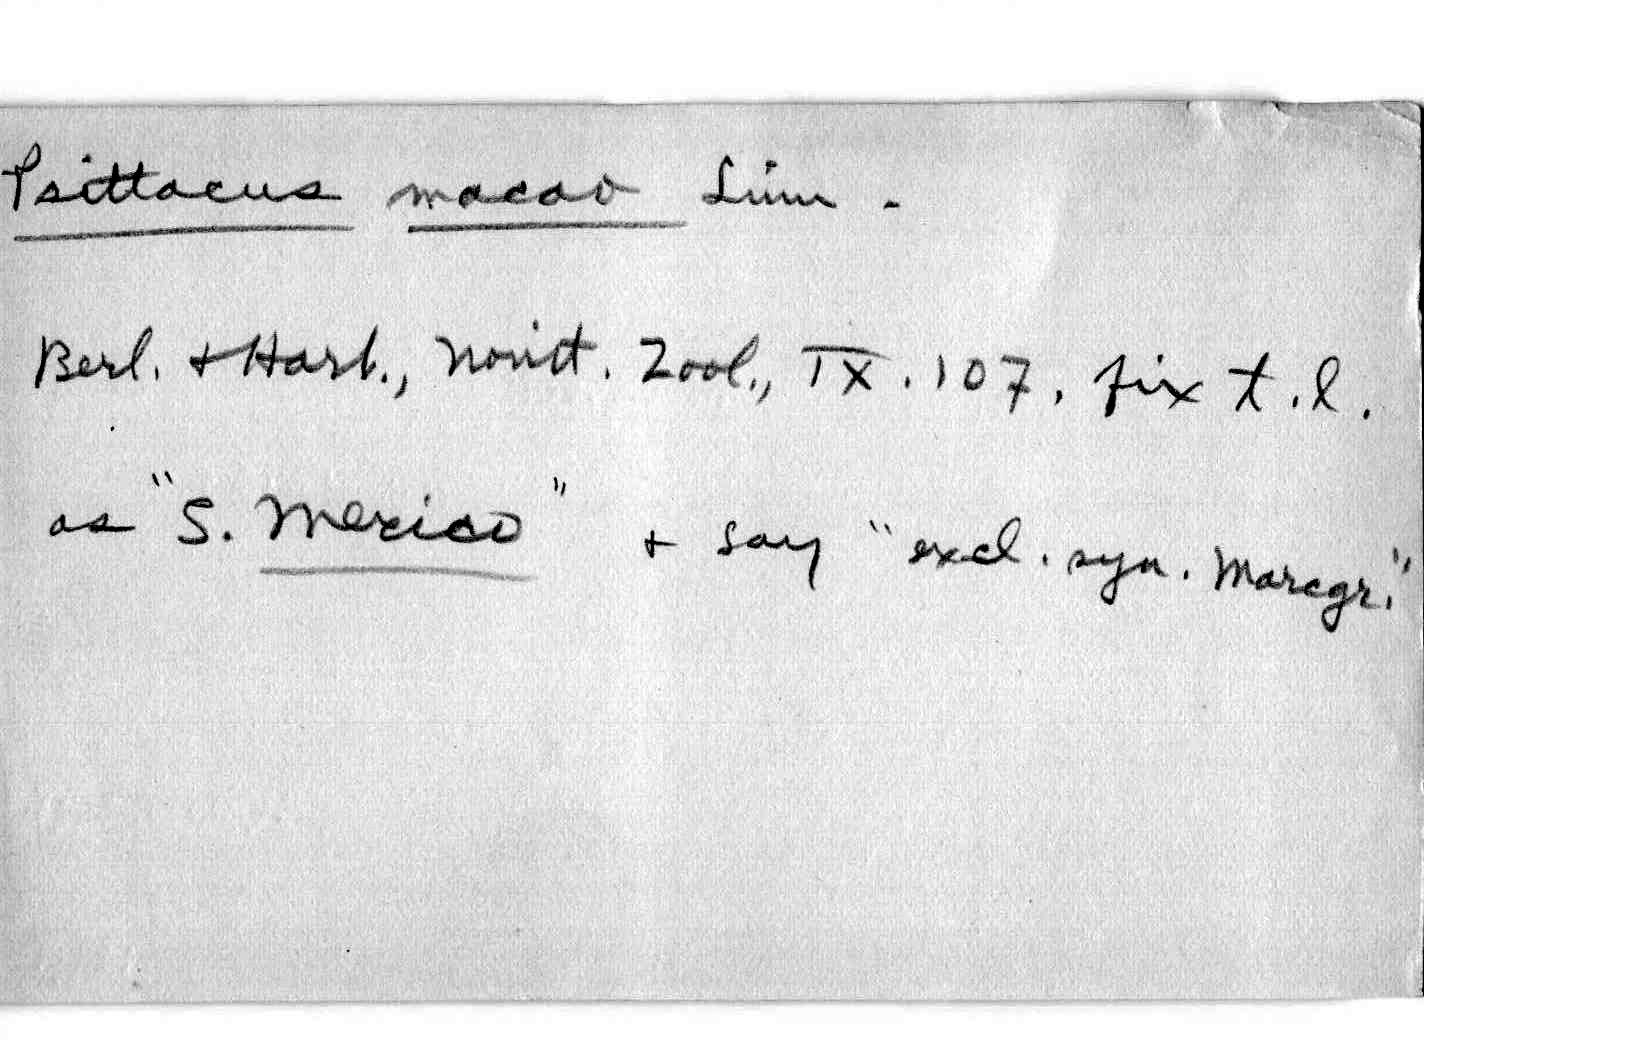 Psittacus macao Linn.
Berl. + Hart., Novit. Zool., IX. 107, fix t.l.
as "S. Mexico" + say "excl. syn. Marcgr."